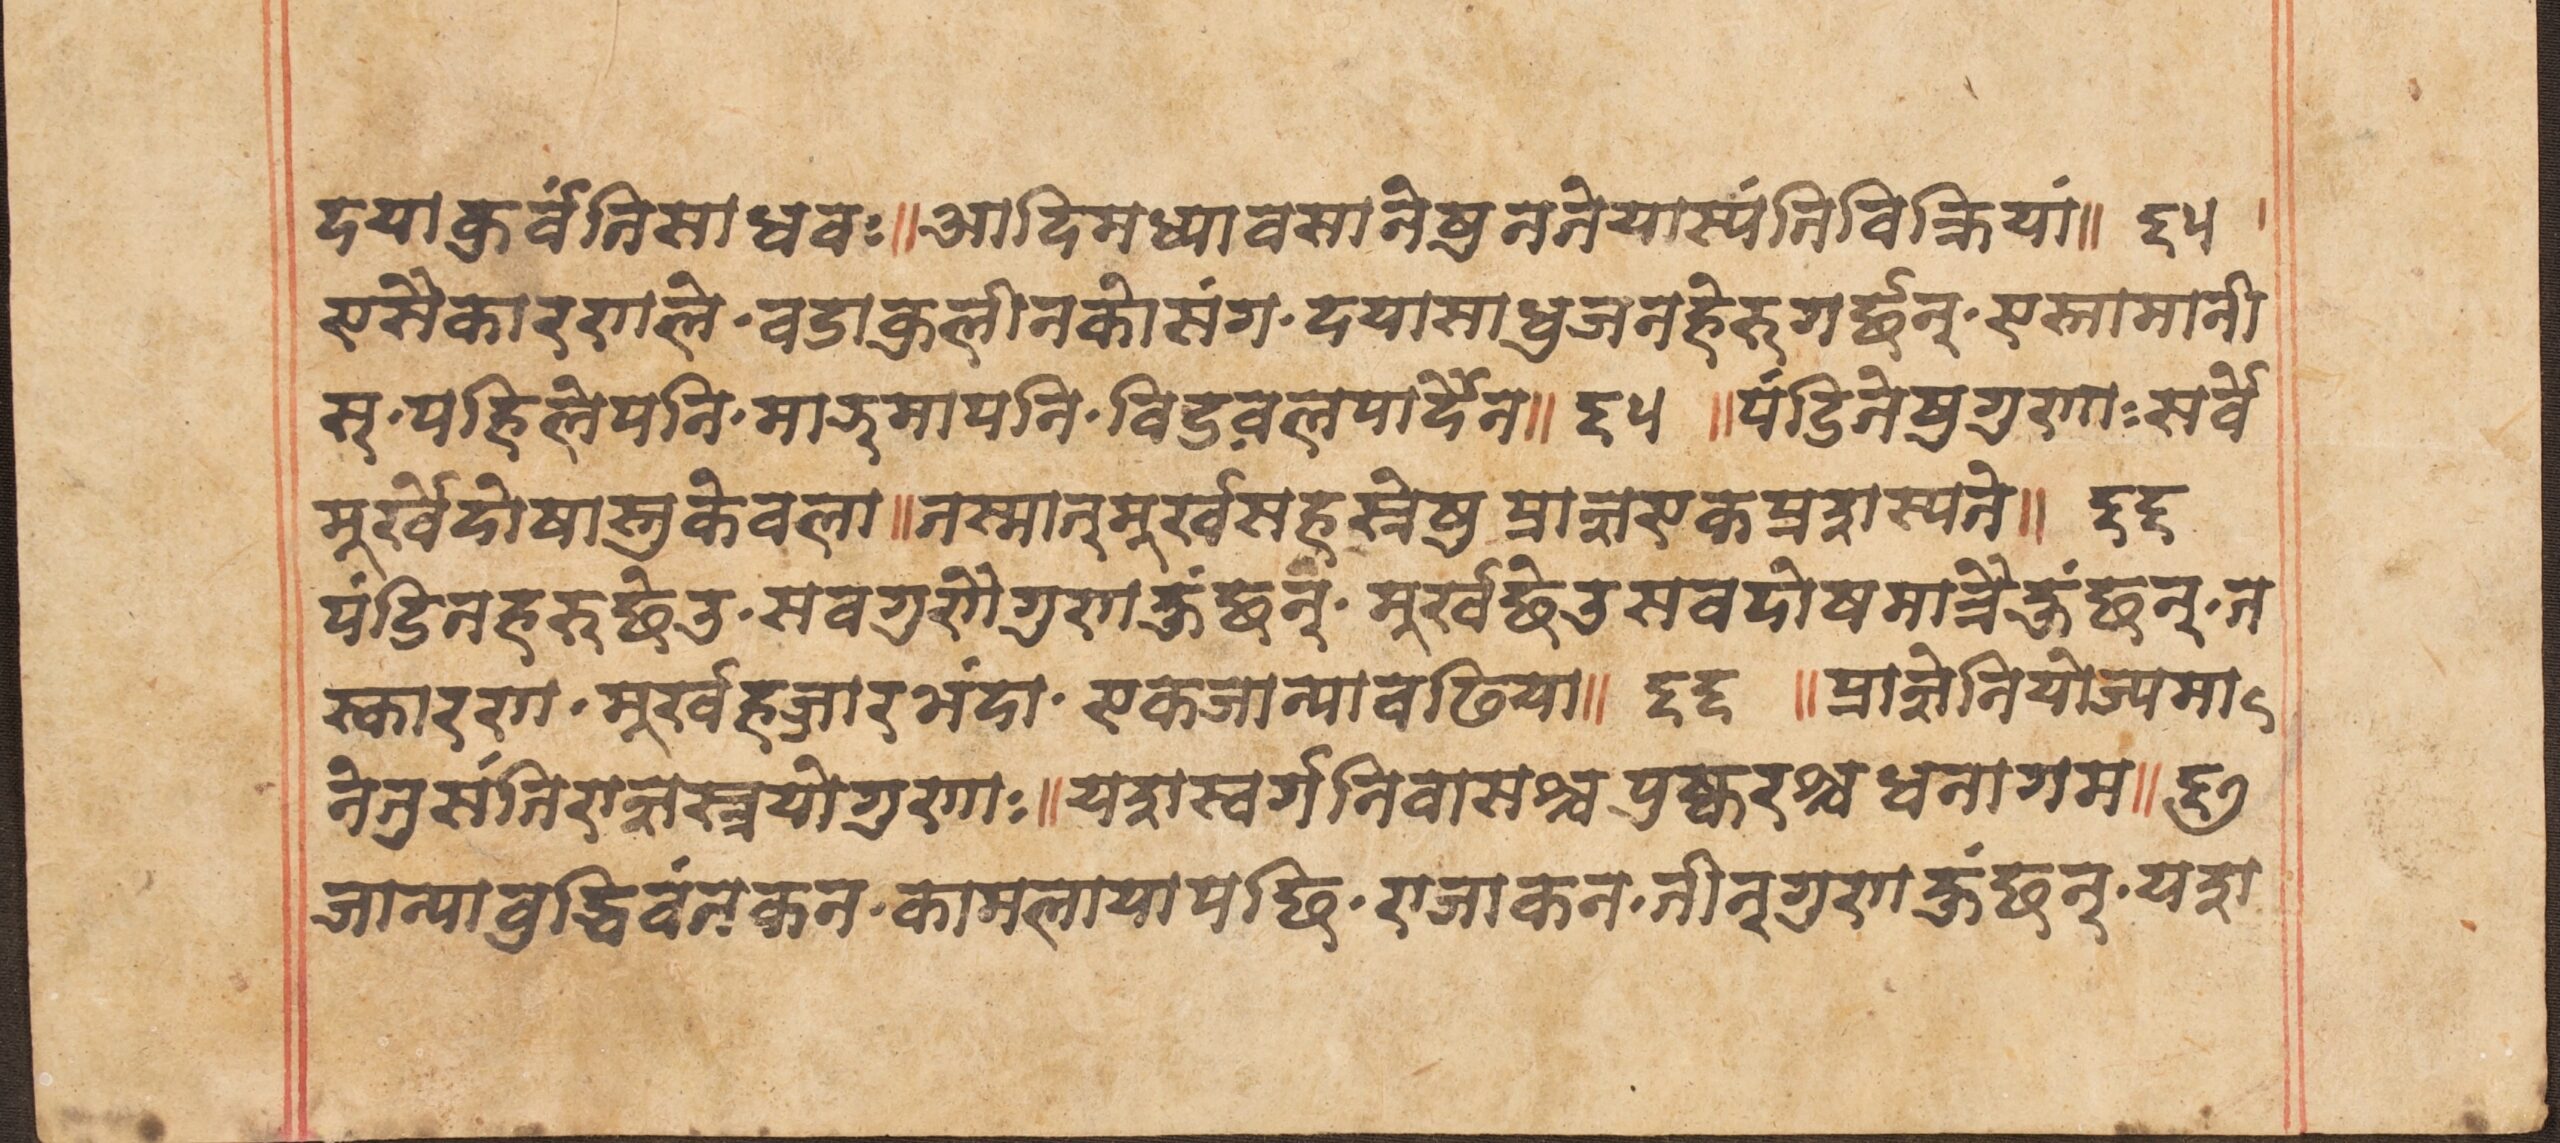 दयाकुर्वंतिसाधवः॥आदिमध्यावसानेषुनतेयास्यंतिविक्रियां॥ ६५
एसैकारणले·वडाकुलीनकोसंग·दयासाधुजनहेरुगर्छन्·एस्तामानी
स्·पहिलेपनि·माझमापनि·विडव़लपार्दैन॥ ६५ ॥पंडितेषुगुणाःसर्वे
मुर्खेदोषास्तुकेवला॥तस्मान्मुर्खसहस्रेषु प्राज्ञएकप्रशस्यते॥ ६६
पंडितहरुछेउ·सवगुणैगुणहुंछन्·मुर्खछेउसवदोषमात्रैहुंछन्·त
स्कारण·मुर्खहजारभंदा·एकजान्यावढिया॥ ६६ ॥प्राज्ञेनियोज्यमा
नेतुसंतिराज्ञस्त्रयोगुणाः॥यशस्वर्गनिवासश्च पुष्करश्चधनागम॥६७
जान्यावुद्धिवंत़कन·कामलायापछि·राजाकन·तीन्गुणहुंछन्·यश